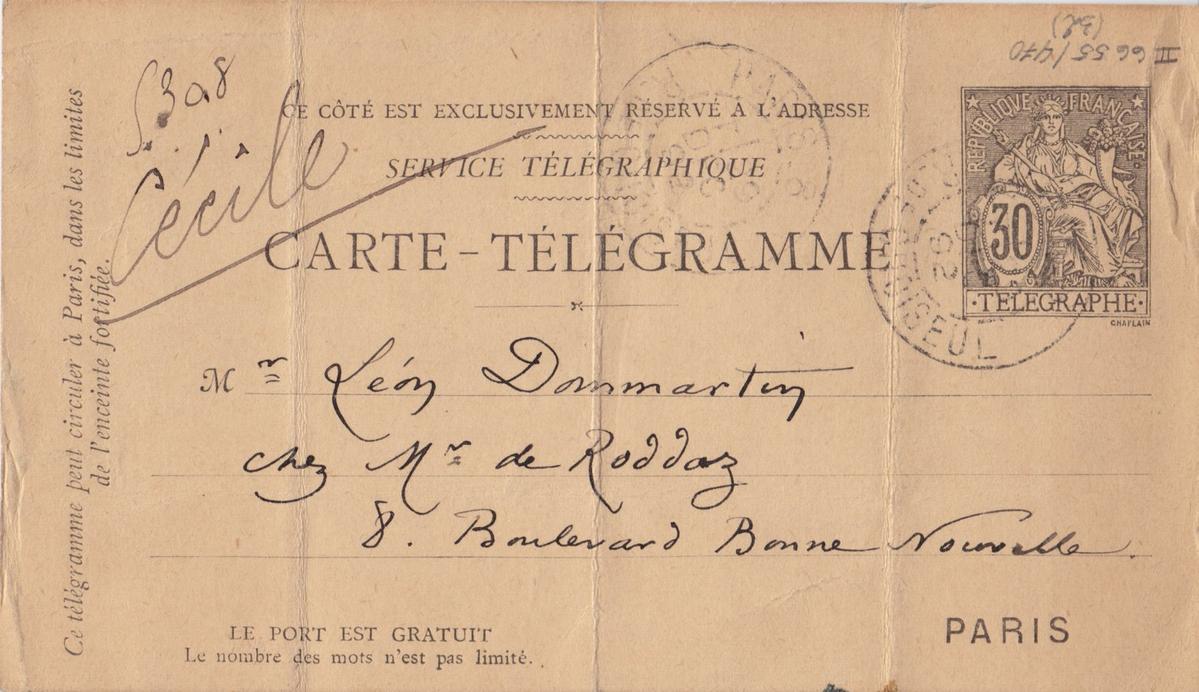 II 6655/470
(32)
S. 308
Cécile
CE CÔTÉ EST EXCLUSIVEMENT RÉSERVÉ À L'ADRESSE
SERVICE TÉLÉGRAPHIQUE
CARTE-TÉLÉGRAMME
RÉPUBLIQUE FRANÇAISE
30
·TELEGRAPHE·
CHAPLAIN
92
CHOISEUL
PARIS
Mr Léon Dommartin
chez Mr de Roddaz
8. Boulevard Bonne Nouvelle.
PARIS
LE PORT EST GRATUIT
Le nombre des mots n'est pas limité.
Ce télégramme peut circuler à Paris, dans les limites
de l'enceinte fortifiée.